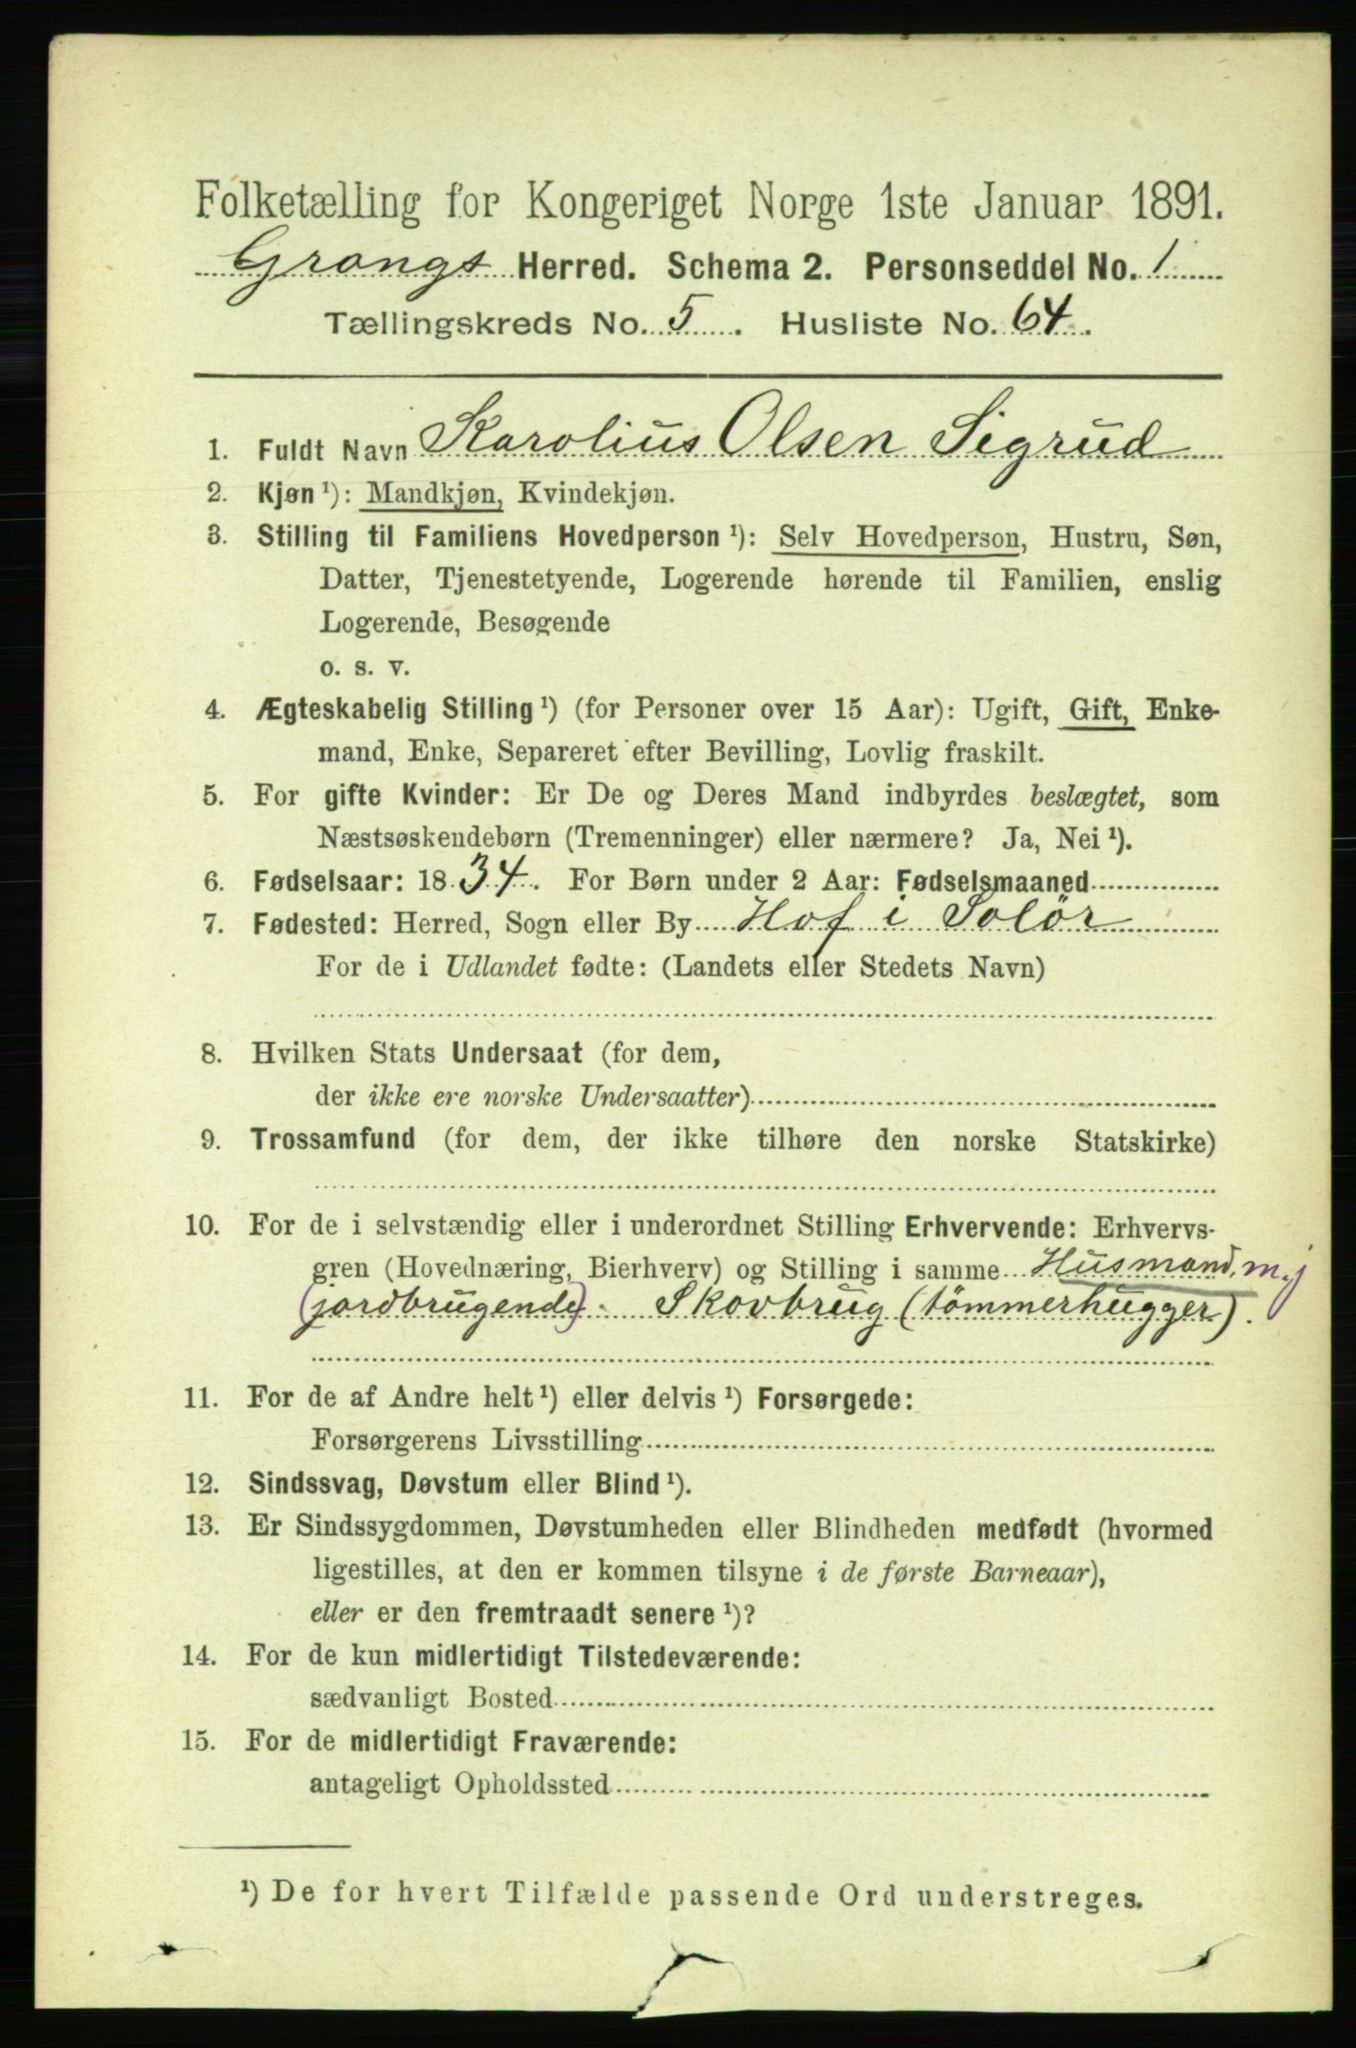 Folketælling for Kongeriget Norge 1ste Januar 1891.
Grongs Herred. Schema 2. Personseddel No. 1
Tællingskreds No. 5. Husliste No. 64.
1. Fuldt Navn Karolius Olsen Sigrud
2. Kjøn ¹): Mandkjøn, Kvindekjøn.
3. Stilling til Familiens Hovedperson ¹): Selv Hovedperson, Hustru, Søn,
Datter, Tjenestetyende, Logerende hørende til Familien, enslig
Logerende, Besøgende
o. s. v.
4. Ægteskabelig Stilling ¹) (for Personer over 15 Aar): Ugift, Gift, Enke-
mand, Enke, Separeret efter Bevilling, Lovlig fraskilt.
5. For gifte Kvinder: Er De og Deres Mand indbyrdes beslægtet, som
Næstsøskendebørn (Tremenninger) eller nærmere? Ja, Nei ¹).
6. Fødselsaar: 1834. For Børn under 2 Aar: Fødselsmaaned
7. Fødested: Herred, Sogn eller By Hof i Solör
For de i Udlandet fødte: (Landets eller Stedets Navn)
8. Hvilken Stats Undersaat (for dem,
der ikke ere norske Undersaatter)
9. Trossamfund (for dem, der ikke tilhøre den norske Statskirke)
10. For de i selvstændig eller i underordnet Stilling Erhvervende: Erhvervs-
gren (Hovednæring, Bierhverv) og Stilling i samme Husmand, m. j
(jordbrugende). Skovbrug (tömmerhugger).
11. For de af Andre helt ¹) eller delvis ¹) Forsørgede:
Forsørgerens Livsstilling
12. Sindssvag, Døvstum eller Blind ¹).
13. Er Sindssygdommen, Døvstumheden eller Blindheden medfødt (hvormed
ligestilles, at den er kommen tilsyne i de første Barneaar),
eller er den fremtraadt senere ¹)?
14. For de kun midlertidigt Tilstedeværende:
sædvanligt Bosted
15. For de midlertidigt Fraværende:
antageligt Opholdssted
¹) De for hvert Tilfælde passende Ord understreges.